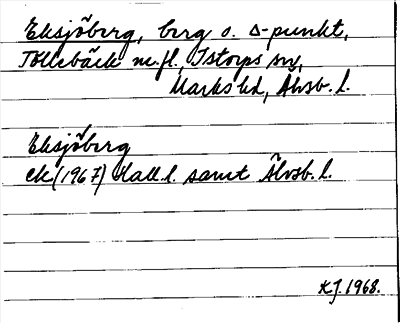 Eksjöberg, berg o. Δ-punkt,
Tollebäck m.fl., Istorps sn,
Marks hd, Älvsb. l.
Eksjöberg
ek (1967) Hall. l. samt Älvsb. l.
KJ. 1968.